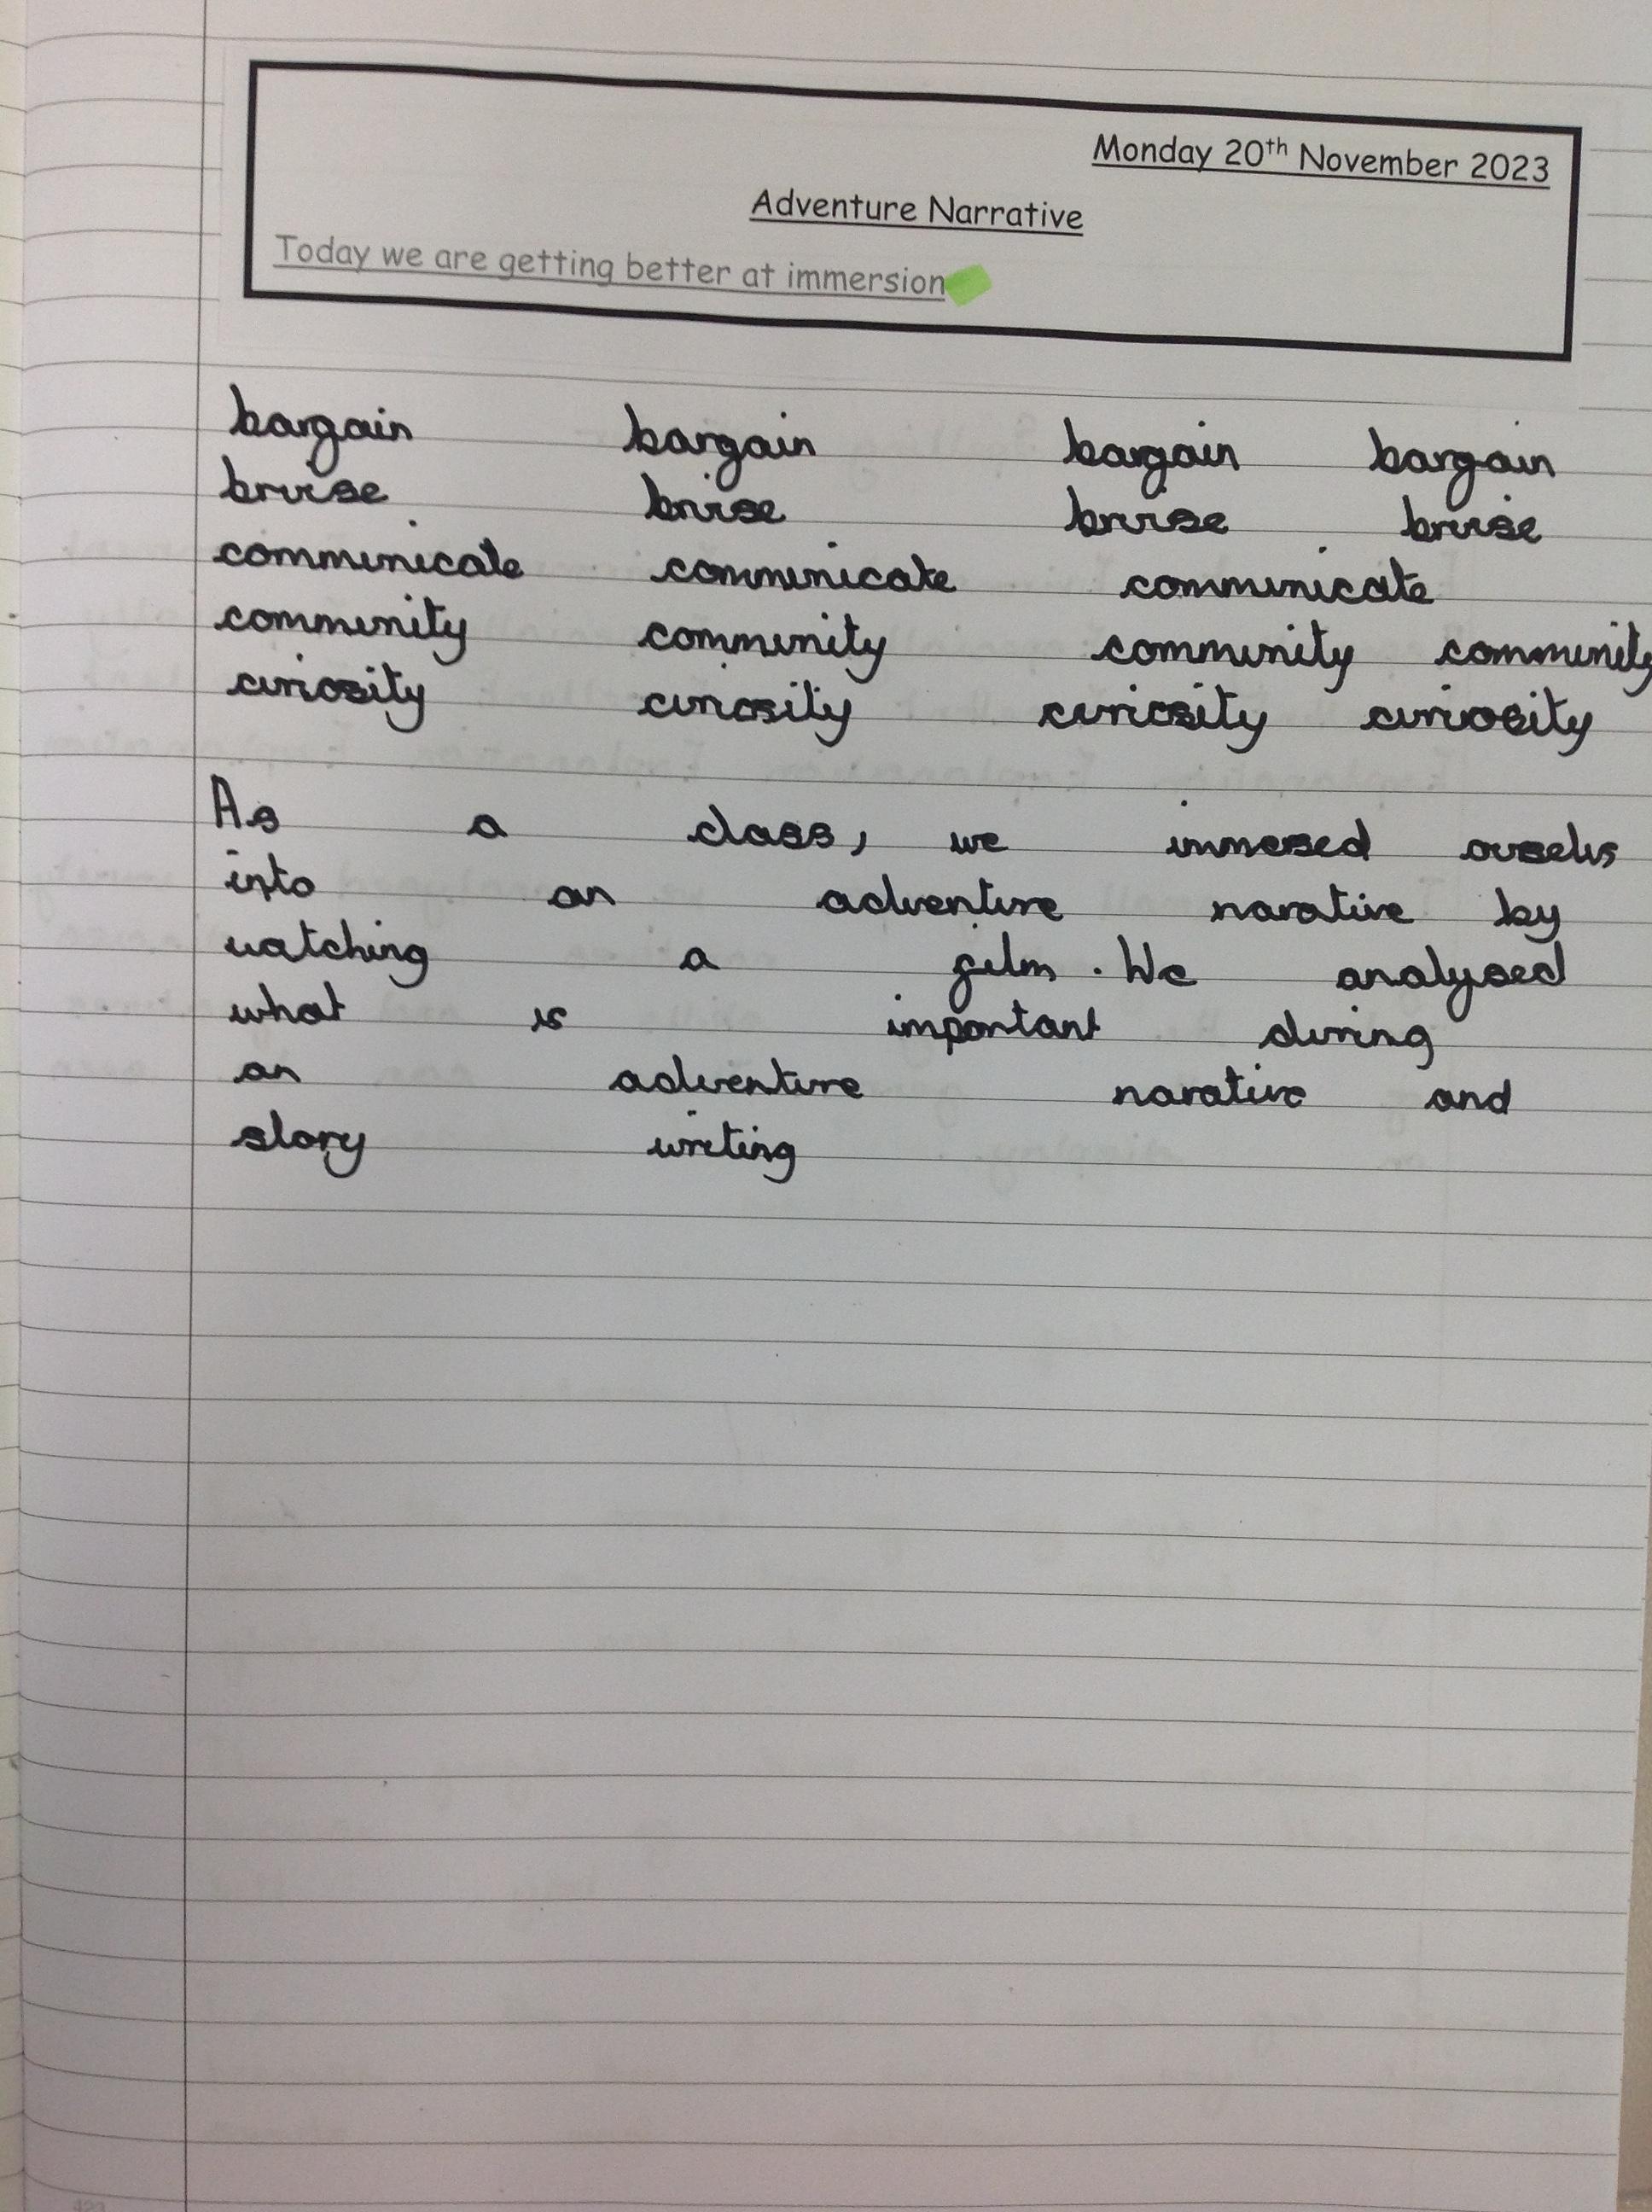 Monday 20th November 2023
Adventure Narrative
Today we are getting better at immersion
bargain bargain bargain bargain
bruise bruise bruise bruise
communicate communicate communicate
community community community community
curiosity curiosity curiosity curiosity
As a class, we immersed ourselves
into an adventure narative by
watching a film. We analysed
what is important during
an adventure narative and
story writing